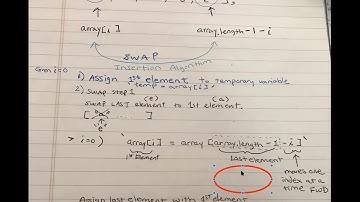 array[i]
array.length-1-i
SWAP
Insertion Algorithm
i=0
1) Assign 1st element to temporary variable
temp = array[i].
2) SWAP step 1
(e) (a)
SWAP LAST element to 1st element.
> i=0) `array[i] = array[array.length-1-i]`
1st Element
Last element
moves one
index at a
time FWD
Assign last element with 1st element